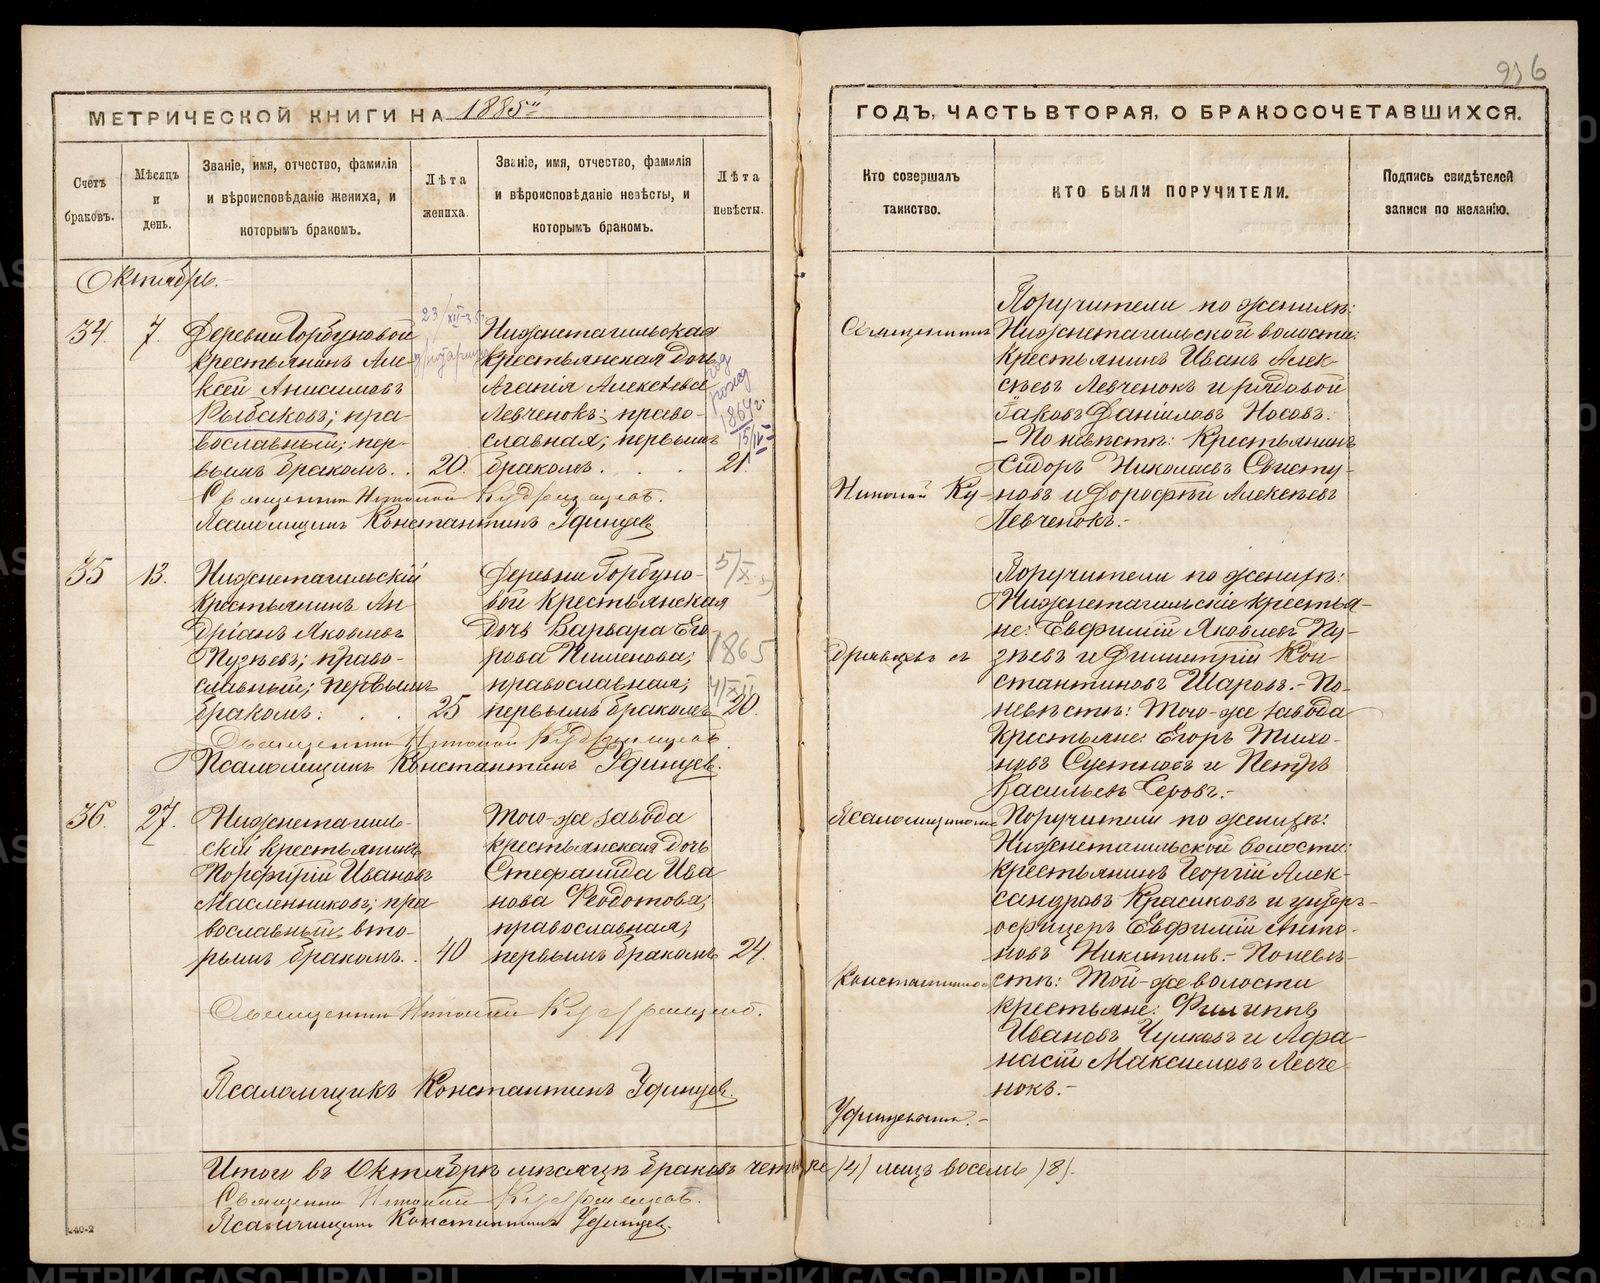 236
МЕТРИЧЕСКОЙ КНИГИ НА 1885й
ГОДЪ, ЧАСТЬ ВТОРАЯ, О БРАКОСОЧЕТАВШИХСЯ.
Счетъ браковъ.
Мѣсяцъ и день.
Званіе, имя, отчество, фамилія
и вѣроисповѣданіе жениха, и
которымъ бракомъ.
Лѣта жениха.
Званіе, имя, отчество, фамилія
и вѣроисповѣданіе невѣсты, и
которымъ бракомъ.
Лѣта невѣсты.
Кто совершалъ
таинство.
КТО БЫЛИ ПОРУЧИТЕЛИ.
Подпись свидѣтелей
записи по желанію.
Октябрь.
34. 7.
Деревни Горбуновой
крестьянинъ Але-
ксѣй Анисимовъ
Рыбаковъ; пра-
вославный; пер-
вымъ бракомъ. . 20.
Нижнетагильская
крестьянская дочь
Агапія Алексѣева
Левченокъ; право-
славная; первымъ
бракомъ. . . 21.
23/XII-35г.
год
рожд
1864г.
15/IV
Священникъ
Николай Ку-
Поручители по женихѣ:
Нижнетагильской волости:
крестьянинъ Иванъ Алек-
сѣевъ Левченокъ и рядовой
Іаковъ Даніиловъ Носовъ.
- По невѣстѣ: Крестьянинъ
Сидоръ Николаевъ Свисту-
новъ и Дорофѣй Алексѣевъ
Левченокъ.-
Священникъ Николай Кудрявцевъ.
Псаломщикъ Константинъ Удинцевъ
35 13.
Нижнетагильскій
крестьянинъ Ан
дріанъ Яковлевъ
Пузѣевъ; право-
славный; первымъ
бракомъ. . . 25
Деревни Горбуно-
вой крестьянская
дочь Варвара Его
рова Пименова;
православная;
первымъ бракомъ 20.
5/X
1865
4/XII
дрявцевъ съ
Поручители по женихѣ:
Нижнетагильскіе крестья-
не: Евфимій Яковлевъ Пу-
зѣевъ и Димитрій Кон
стантиновъ Шаровъ.- По-
невѣстѣ: Того-же завода
Крестьяне: Егоръ Тихо-
новъ Суетновъ и Петръ
Васильевъ Серовъ.-
Священникъ Николай Кудрявцевъ
Псаломщикъ Константинъ Удинцевъ.
36. 27.
Нижнетагиль-
скій крестьянинъ
Порфирій Ивановъ
Масленниковъ; пра
вославный; вто-
рымъ бракомъ. . 40
Того-же завода
крестьянская дочь
Стефанида Ива
нова Ѳеодотова;
православная;
первымъ бракомъ 24.
Псаломщикомъ
Константиномъ
Удинцевымъ.-
Поручители по женихѣ:
Нижнетагильской волости:
крестьянинъ Георгій Алек-
сандровъ Красиковъ и унтеръ-
офицеръ Евфимій Анто-
новъ Никитинъ.- По невѣ-
стѣ: Той-же волости
крестьяне: Филиппъ
Ивановъ Чулковъ и Афа-
насій Максимовъ Левче-
нокъ.-
Священникъ Николай Кудрявцевъ.
Псаломщикъ Константинъ Удинцевъ.
Итого въ Октябрѣ мѣсяцѣ браковъ четыре /4/ лицъ восемь /8/.
Священникъ Николай Кудрявцевъ.
Псаломщикъ Константинъ Удинцевъ.
METRIKI.GASO-URAL.RU